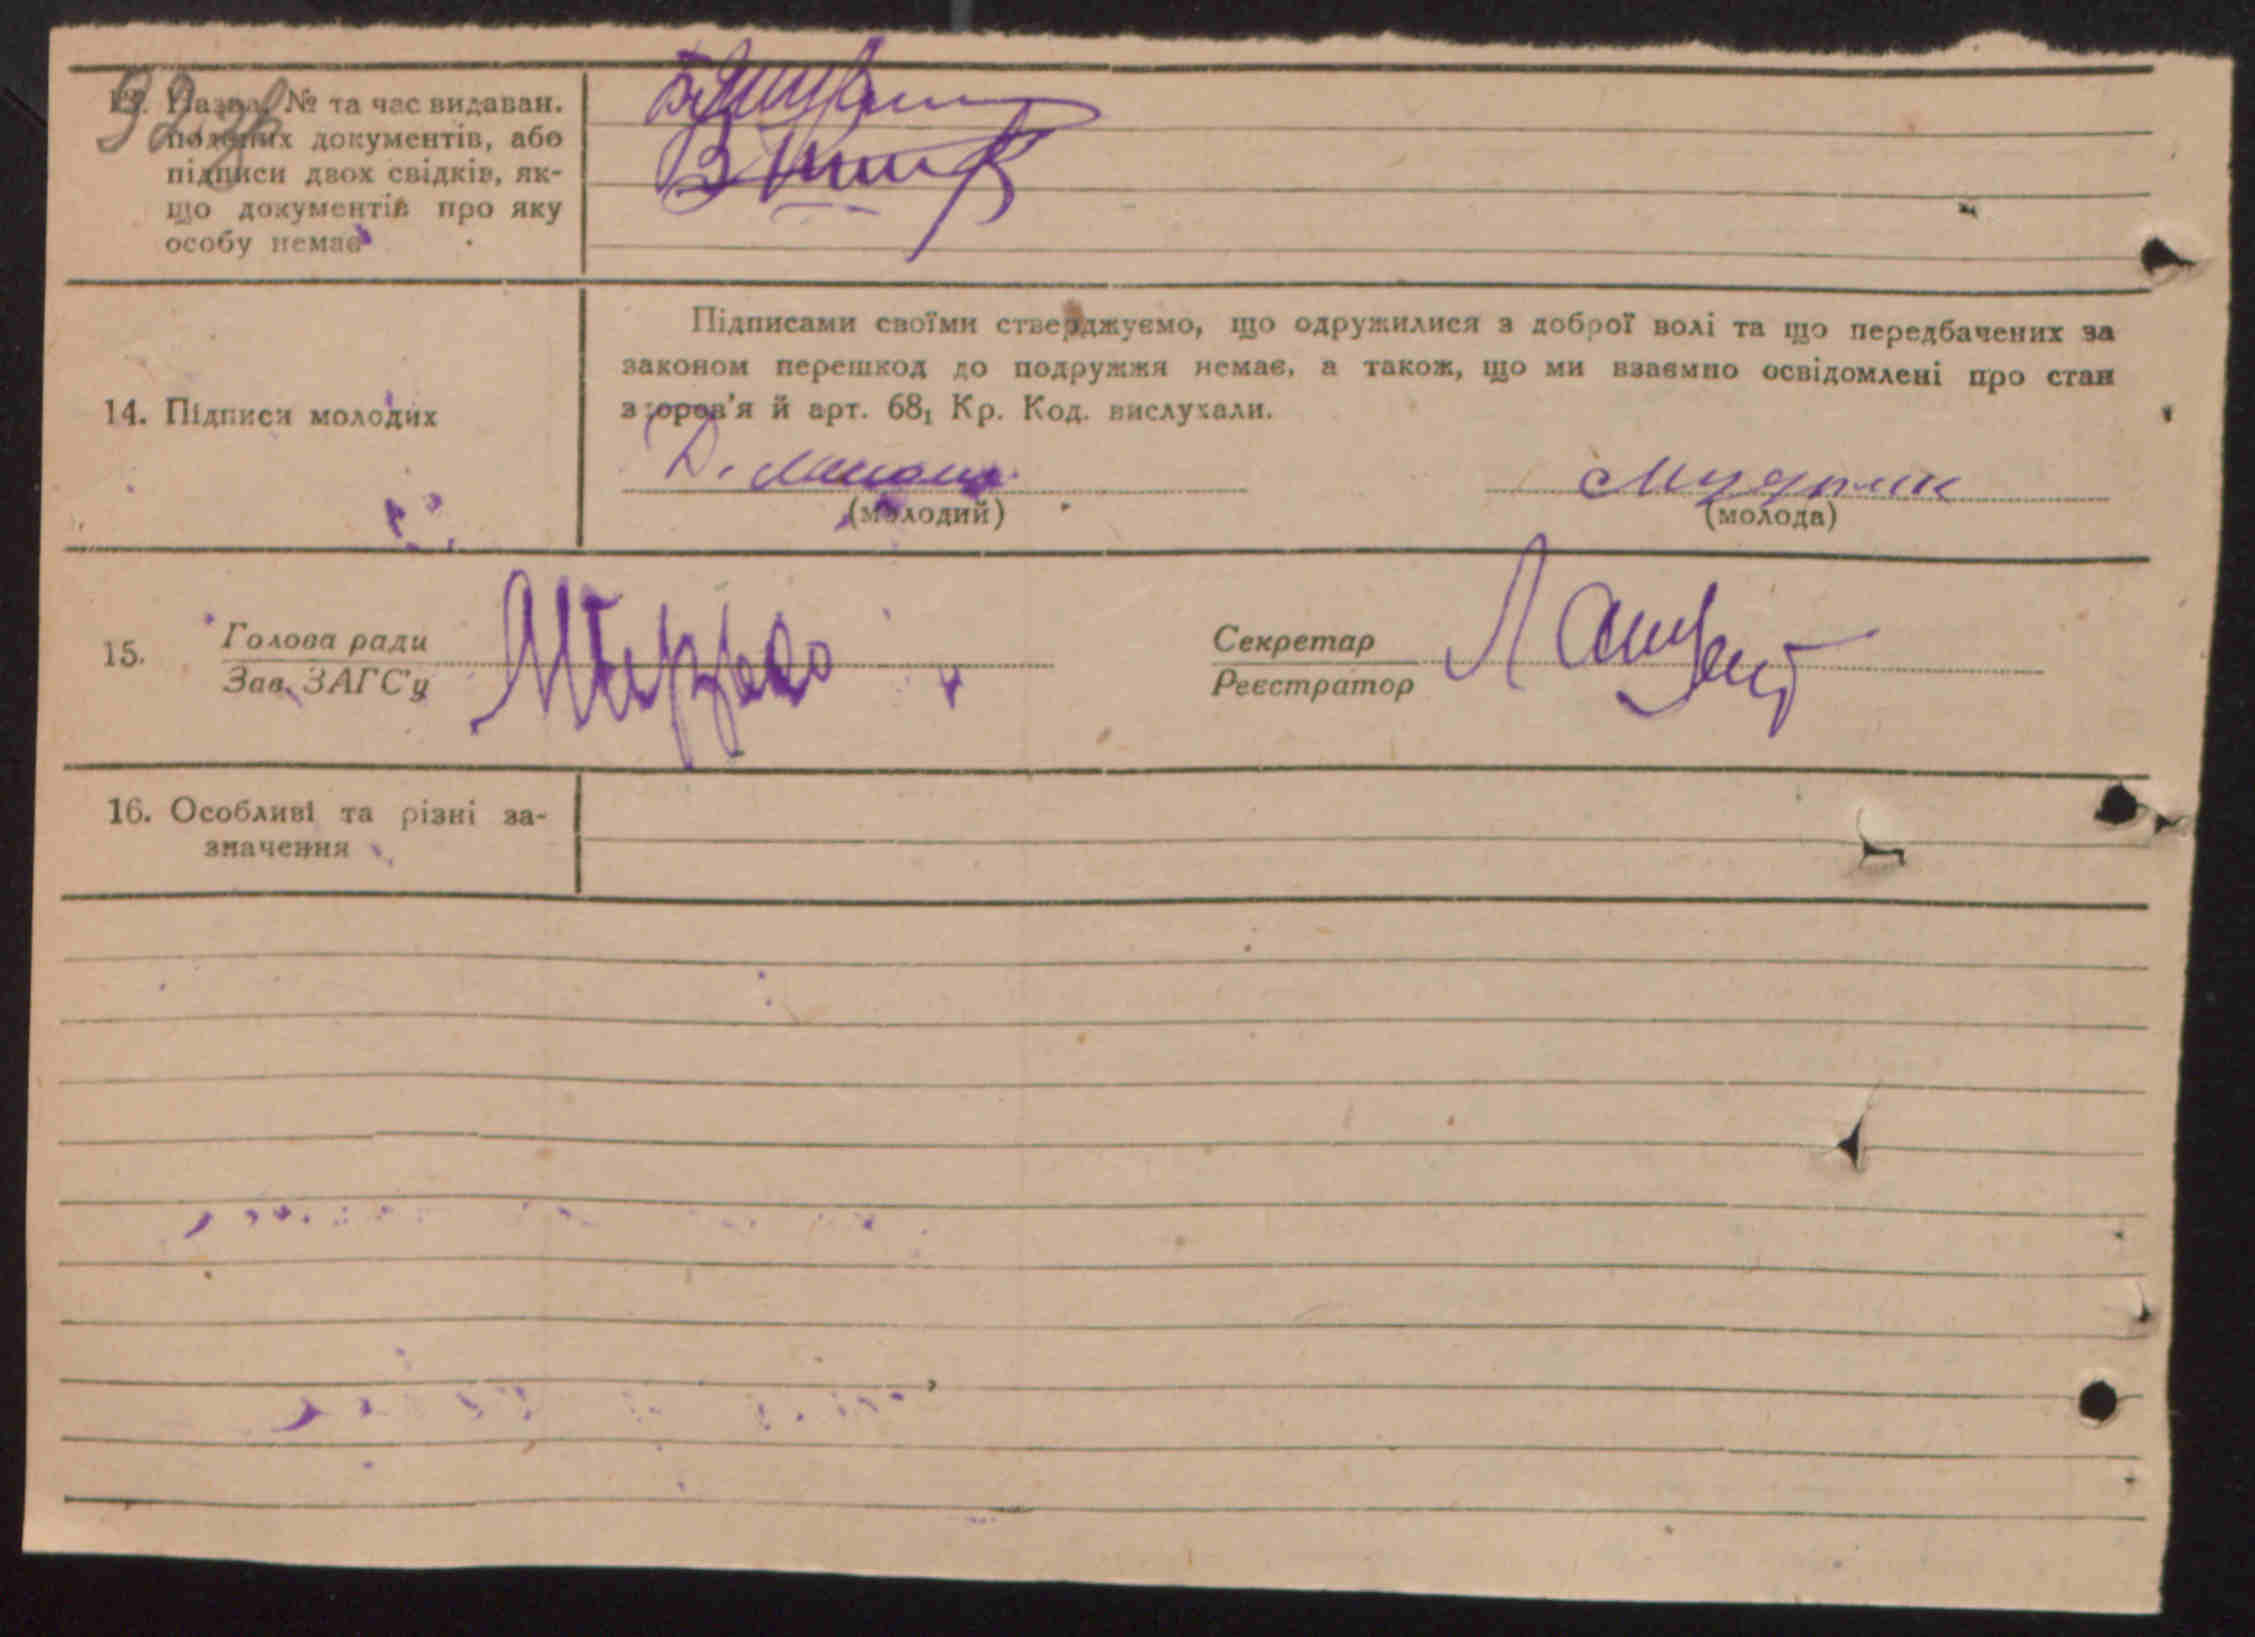 13. Назва, № та час видаван.
поданих документів, або
підписи двох свідків, як-
що документів про яку
особу немає
Підписами своїми стверджуємо, що одружилися з доброї волі та що передбачених за
законом перешкод до подружжя немає, а також, що ми взаємно освідомлені про стан
здоров'я й арт. 68₁ Кр. Код. вислухали.
14. Підписи молодих
Д.
(молодий)
(молода)
15. Голова ради
Зав. ЗАГС'у
Секретар
Реєстратор
16. Особливі та різні за-
значення